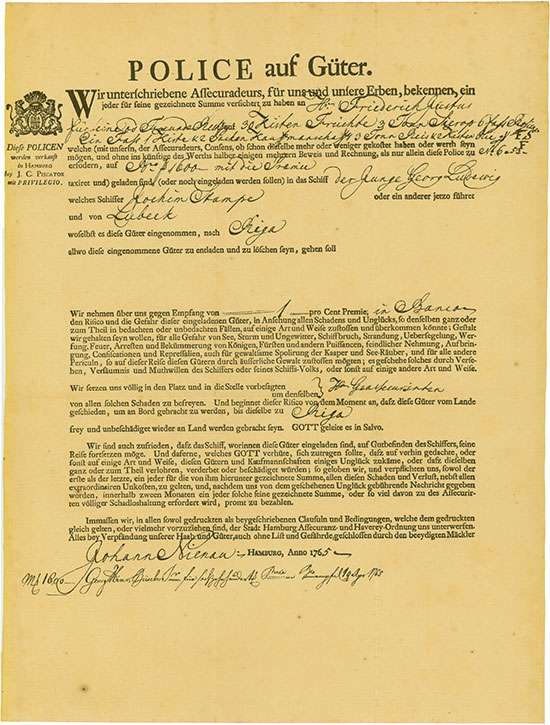 POLICE auf Güter.
Wir unterschriebene Assecuradeurs, für uns und unsere Erben, bekennen, ein
jeder für seine gezeichnete Summe versichert zu haben an Hrn Friederich Justus
30 Kisten Früchte 3 Tonn
Ein Fass 1 Kiste
welche (mit unserm, der Assecuradeurs, Consens, ob schon dieselbe mehr oder weniger gekostet haben oder werth seyn
mögen, und ohne ins künftige des Werths halber einigen mehrern Beweis und Rechnung, als nur allein diese Police zu
erfordern, auf 1600 mit die
taxiret und) geladen sind, (oder noch eingeladen werden sollen) in das Schiff der Junge Georg Ludewig
welches Schiffer Jochem Stampe oder ein anderer jetzo führet
und von Lubeck
woselbst es diese Güter eingenommen, nach Riga
allwo diese eingenommene Güter zu entladen und zu löschen seyn, gehen soll
Diese POLICEN
werden verkauft
in HAMBURG
bey J. C. PISCATOR
mit PRIVILEGIO.
Wir nehmen über uns gegen Empfang von 1 pro Cent Premie, in Banco
den Risico und die Gefahr dieser eingeladenen Güter, in Ansehung allen Schadens und Unglücks, so denselben ganz oder
zum Theil in bedachten oder unbedachten Fällen, auf einige Art und Weise zustossen und überkommen könnte: Gestalt
wir gehalten seyn wollen, für alle Gefahr von See, Sturm und Ungewitter, Schiffbruch, Strandung, Uebersegelung, Werfung,
Feuer, Arresten und Bekümmerung von Königen, Fürsten und andern Puissancen, feindlicher Nehmung, Aufbringung,
Confiscationen und Repressalien, auch für gewaltsame Spolirung der Kasper und See-Räuber, und für alle andere
Pericula, so auf dieser Reise diesen Gütern durch äusserliche Gewalt zustossen mögen; es geschehe solches durch Versehen,
Versäumnis und Muthwillen des Schiffers oder seines Schiffs-Volks, oder sonst auf einige andere Art und Weise.
Wir setzen uns völlig in den Platz und in die Stelle vorbesagten
um denselben
von allen solchen Schaden zu befreyen. Und beginnet dieser Risico von dem Moment an, dass diese Güter vom Lande
geschieden, um an Bord gebracht zu werden, bis dieselbe zu Riga
frey und unbeschädiget wieder an Land werden gebracht seyn. GOTT geleite es in Salvo.
Wir sind auch zufrieden, dass das Schiff, worinnen diese Güter eingeladen sind, auf Gutbefinden des Schiffers, seine
Reise fortsetzen möge. Und daferne, welches GOTT verhüte, sich zutragen sollte, dass auf vorhin gedachte, oder
sonst auf einige Art und Weise, diesen Gütern und Kaufmannschaften einiges Unglück zukäme, oder dass dieselben
ganz oder zum Theil verlohren, verderbet oder beschädiget würden; so geloben wir, und verpflichten uns, sowol der
erste als der letzte, ein jeder für die von ihm hierunter gezeichnete Summe, allen diesen Schaden und Verlust, nebst allen
extraordinairen Unkosten, zu gelten, und, nachdem uns von dem geschehenen Unglück gebührende Nachricht gegeben
worden, innerhalb zween Monaten ein jeder solche seine gezeichnete Summe, oder so viel davon zu des Assecurirten
völliger Schadloshaltung erfordert wird, promt zu bezahlen.
Immassen wir, in allen sowol gedruckten als beygeschriebenen Clausuln und Bedingungen, welche dem gedruckten
gleich gelten, oder vielmehr vorzuziehen sind, der Stadt Hamburg Assecuranz- und Haverey-Ordnung uns unterwerfen.
Alles bey Verpfändung unserer Haab und Güter, auch ohne List und Gefährde, geschlossen durch den beeydigten Mäckler
Johann Nienau HAMBURG, Anno 1765